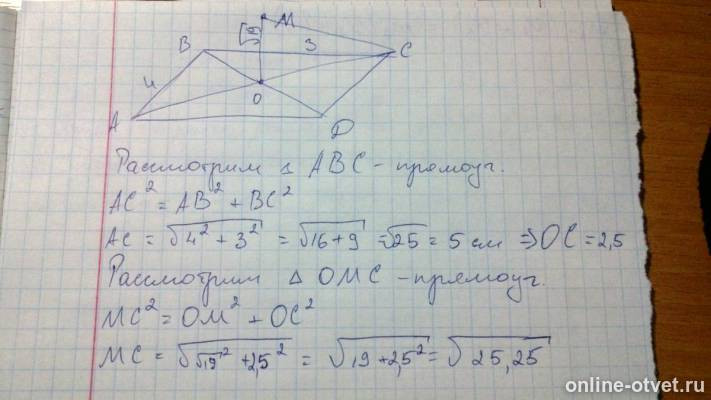 M
B 3 C
4
O
A D
Рассмотрим △ ABC - прямоуг.
AC² = AB² + BC²
AC = √4² + 3² = √16+9 = √25 = 5 см ⇒ OC = 2,5
Рассмотрим △ OMC - прямоуг.
MC² = OM² + OC²
MC = √√19² + 2,5² = √19 + 2,5² = √25,25
online-otvet.ru